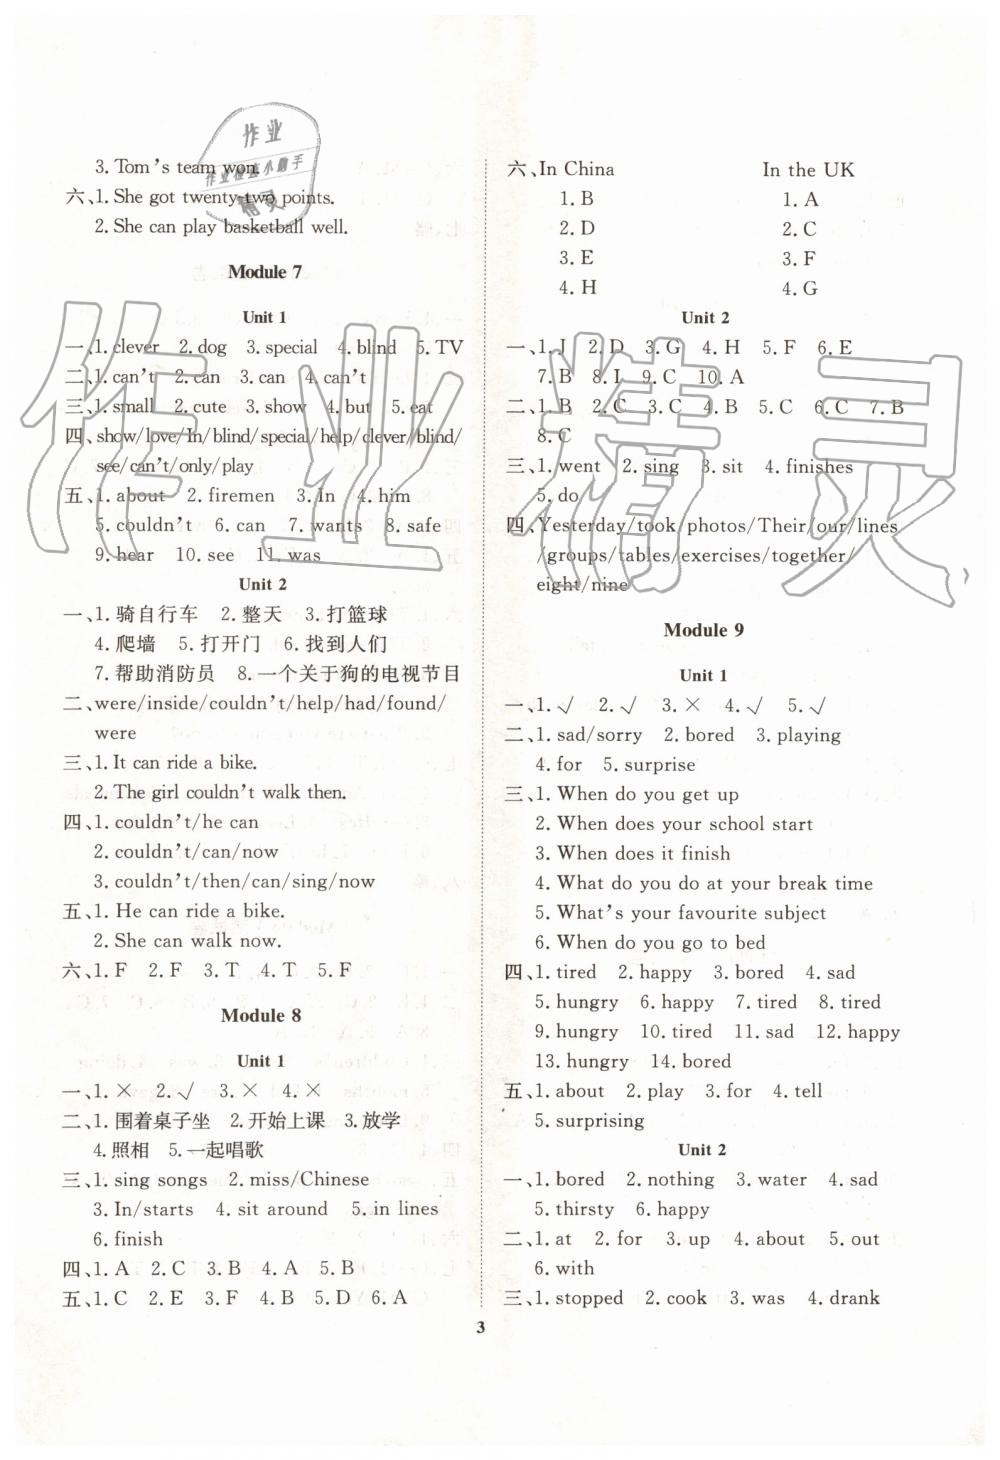 3. Tom's team won.
六、1. She got twenty-two points.
2. She can play basketball well.
Module 7
Unit 1
一、1. clever 2. dog 3. special 4. blind 5. TV
二、1. can't 2. can 3. can 4. can't
三、1. small 2. cute 3. show 4. but 5. eat
四、show/love/In/blind/special/help/clever/blind/
see/can't/only/play
五、1. about 2. firemen 3. In 4. him
5. couldn't 6. can 7. wants 8. safe
9. hear 10. see 11. was
Unit 2
一、1. 骑自行车 2. 整天 3. 打篮球
4. 爬墙 5. 打开门 6. 找到人们
7. 帮助消防员 8. 一个关于狗的电视节目
二、were/inside/couldn't/help/had/found/
were
三、1. It can ride a bike.
2. The girl couldn't walk then.
四、1. couldn't/he can
2. couldn't/can/now
3. couldn't/then/can/sing/now
五、1. He can ride a bike.
2. She can walk now.
六、1. F 2. F 3. T 4. T 5. F
Module 8
Unit 1
一、1. × 2. √ 3. × 4. ×
二、1. 围着桌子坐 2. 开始上课 3. 放学
4. 照相 5. 一起唱歌
三、1. sing songs 2. miss/Chinese
3. In/starts 4. sit around 5. in lines
6. finish
四、1. A 2. C 3. B 4. A 5. B
五、1. C 2. E 3. F 4. B 5. D 6. A
六、In China In the UK
1. B 1. A
2. D 2. C
3. E 3. F
4. H 4. G
Unit 2
一、1. J 2. D 3. G 4. H 5. F 6. E
7. B 8. I 9. C 10. A
二、1. B 2. C 3. C 4. B 5. C 6. C 7. B
8. C
三、1. went 2. sing 3. sit 4. finishes
5. do
四、Yesterday/took/photos/Their/our/lines
/groups/tables/exercises/together/
eight/nine
Module 9
Unit 1
一、1. √ 2. √ 3. × 4. √ 5. √
二、1. sad/sorry 2. bored 3. playing
4. for 5. surprise
三、1. When do you get up
2. When does your school start
3. When does it finish
4. What do you do at your break time
5. What's your favourite subject
6. When do you go to bed
四、1. tired 2. happy 3. bored 4. sad
5. hungry 6. happy 7. tired 8. tired
9. hungry 10. tired 11. sad 12. happy
13. hungry 14. bored
五、1. about 2. play 3. for 4. tell
5. surprising
Unit 2
一、1. bored 2. nothing 3. water 4. sad
5. thirsty 6. happy
二、1. at 2. for 3. up 4. about 5. out
6. with
三、1. stopped 2. cook 3. was 4. drank
3
作业
精灵
作业精灵